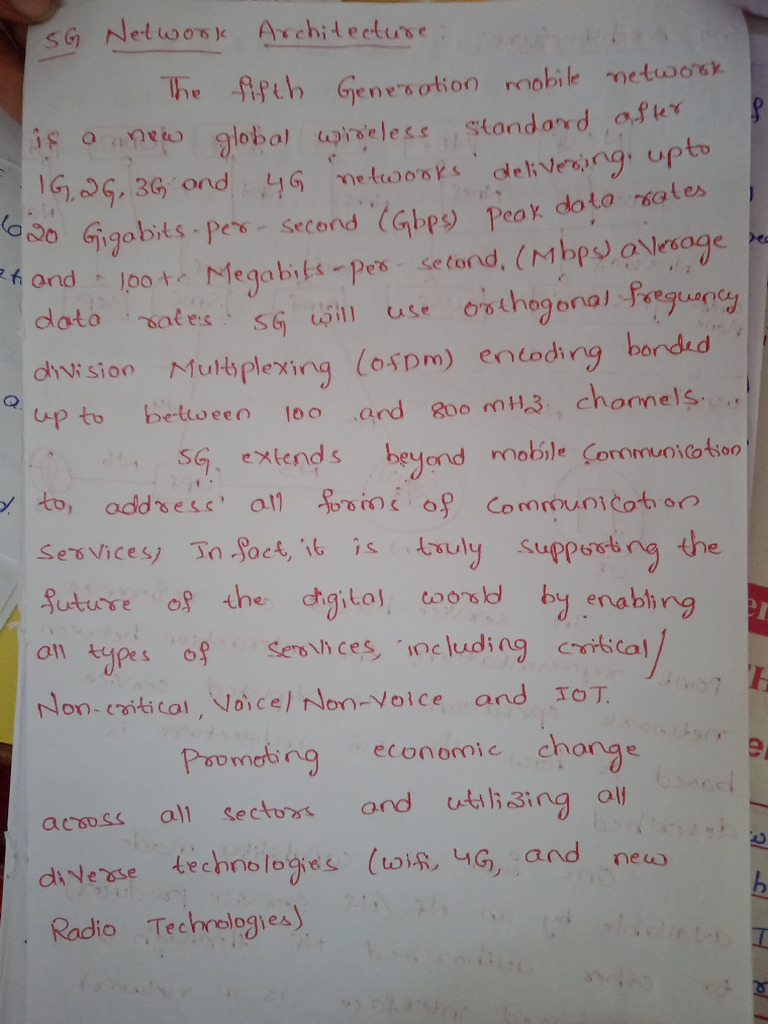 5G Network Architecture:
The fifth Generation mobile network
is a new global wireless standard after
1G, 2G, 3G and 4G networks delivering upto
20 Gigabits-per-second (Gbps) Peak data rates
and 100+ Megabits-per-second. (Mbps) average
data rates. 5G will use orthogonal frequency
division Multiplexing (OFDM) encoding bonded
up to between 100 and 800 MHz channels.
5G extends beyond mobile communication
to, address all forms of communication
services; In fact, it is truly supporting the
future of the digital world by enabling
all types of services, including critical/
Non-critical, Voice/Non-Voice and IOT.
Promoting economic change
across all sectors and utilizing all
diverse technologies (wifi, 4G, and new
Radio Technologies)